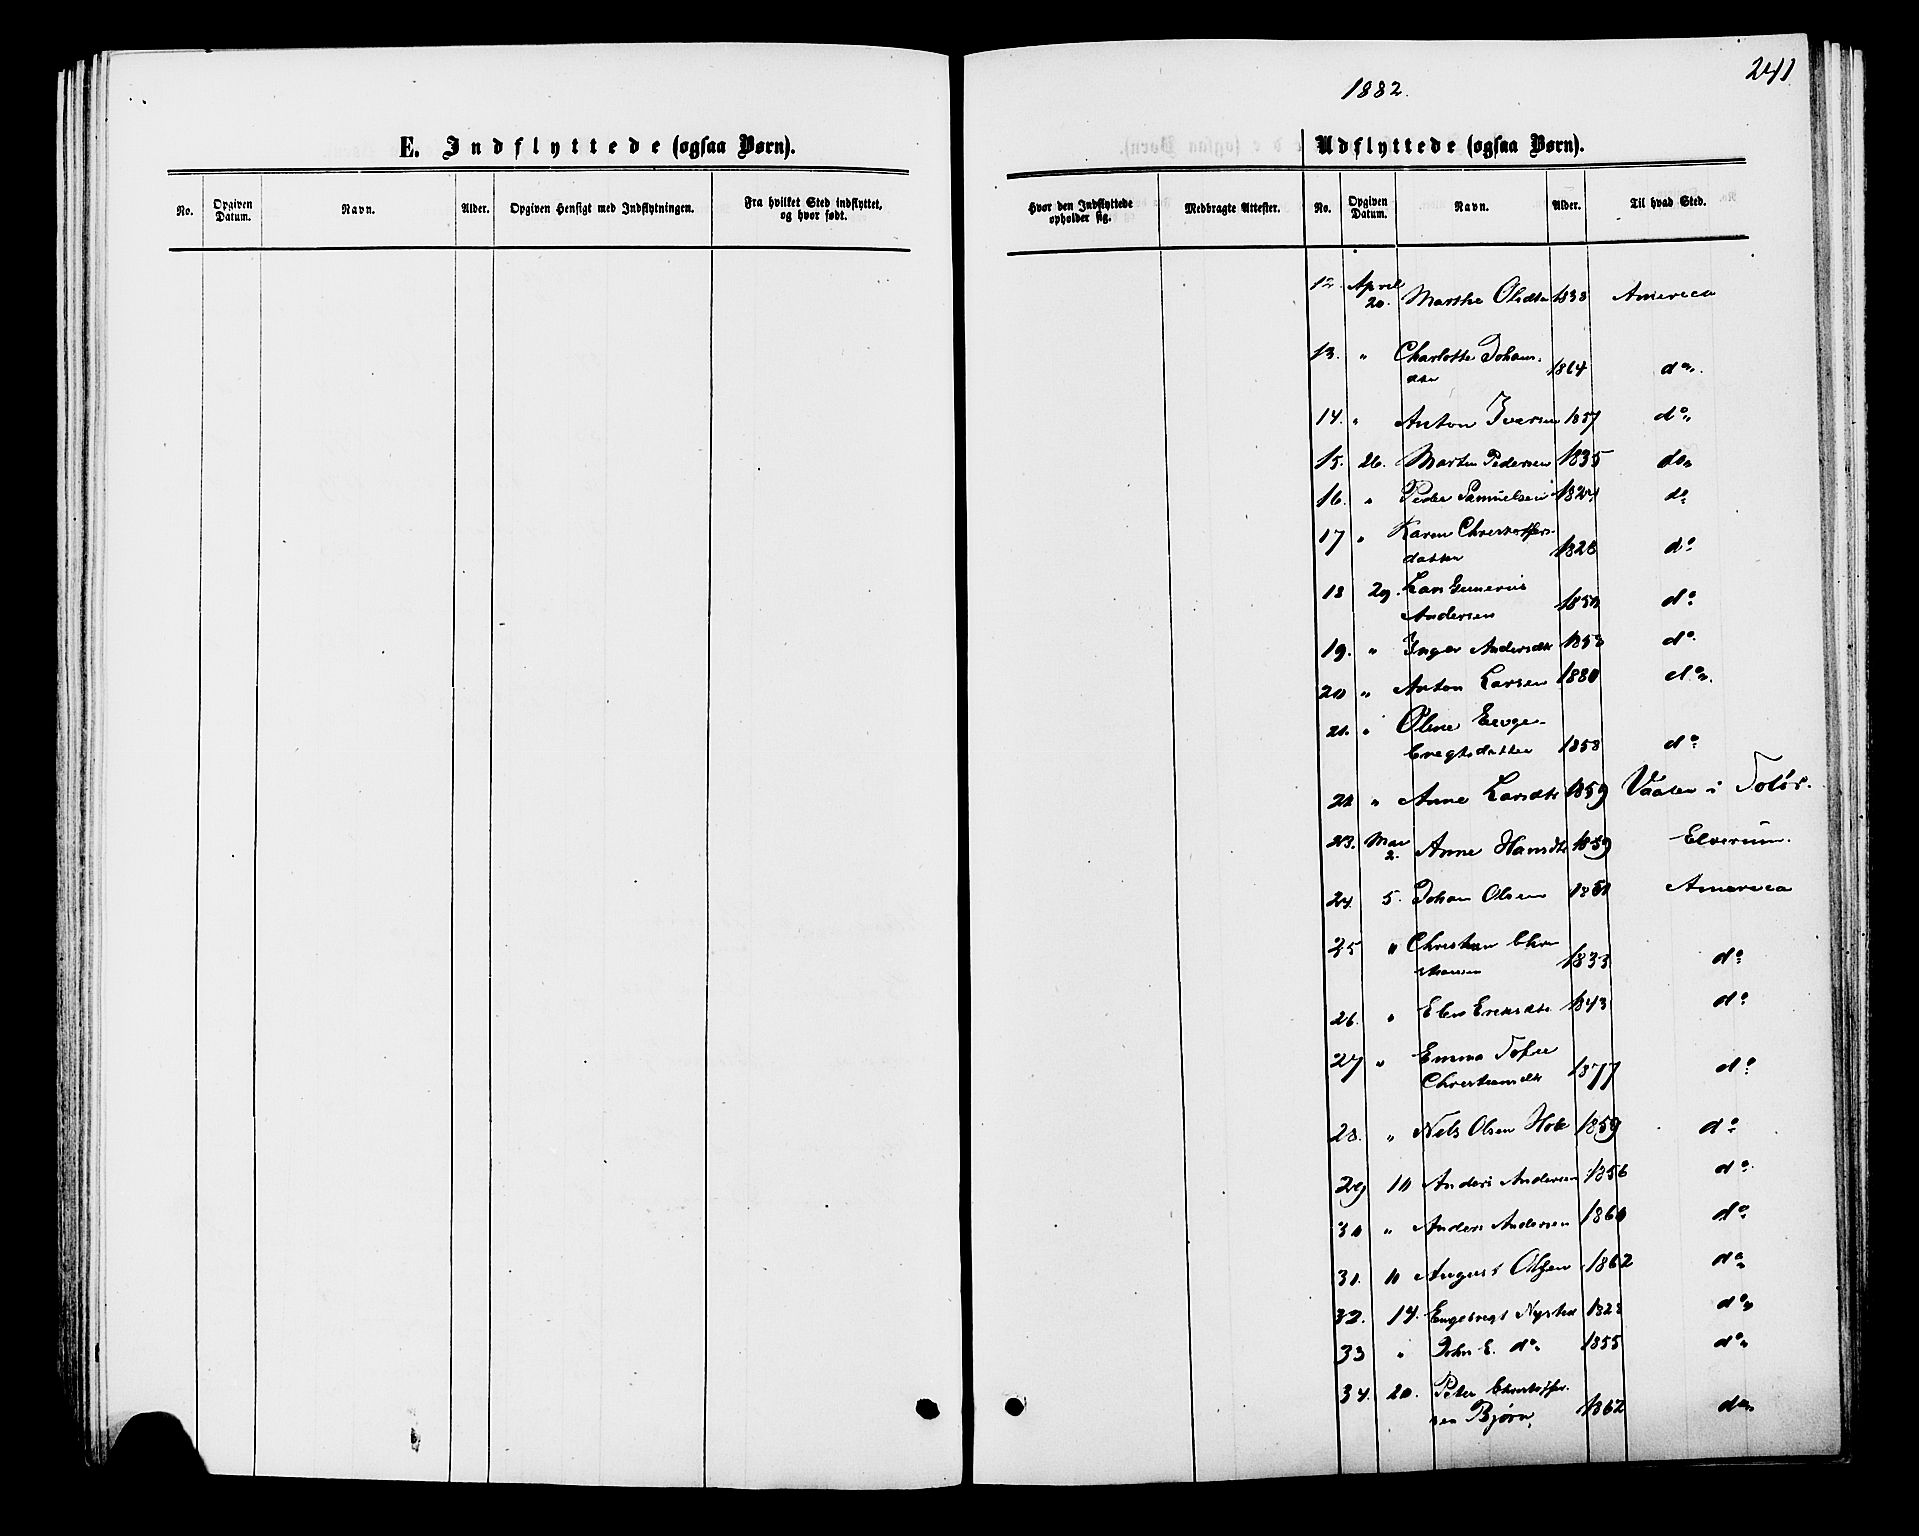 241
1882.
E. Indflyttede (ogsaa Børn).
Udflyttede (ogsaa Børn).
No. Opgiven Datum. Navn. Alder. Opgiven Hensigt med Indflytningen. Fra hvilket Sted indflyttet, og hvor født.
Hvor den Indflyttede opholder sig. Medbragte Attester. No. Opgiven Datum. Navn. Alder. Til hvad Sted.
12. April 20. Marthe Olsdtr 1838 America
13. " Charlotte Johans-
dtr 1864 do.
14. " Anton Iversen 1857 do
15. 26. Marten Pedersen 1835 do
16. " Peder Samuelsen 1824 do
17 " Karen Christoffers-
datter 1828 do
18 29. Lars Gunerius
Andersen do
19. " Inger Andersdtr 1853 do
20 " Anton Larsen 1880 do.
21. " Oline Enge-
bregtsdatter 1858 do
22 " Anne Larsdtr 1859 Vaaler i Solør.
23. Mai 2. Anne Hansdtr 1859 Elverum.
24. 5. Johan Olsen America
25 " Christian Chri
stiansen 1833 do
26. " Eriksdtr 1843 do
27 " Emma Sofie
Christiansdtr 1877 do
28. " Nels Olsen 1859 do
29 10 Anders Andersen 1856 do
30 " Anders Andersen 1860 do
31. " August Olsen 1862 do
32. 14. Engebregt Nysted do
33 " John E. do 1855 do
34. 20. Peter Christoffer-
sen Bjørn, 1862 do